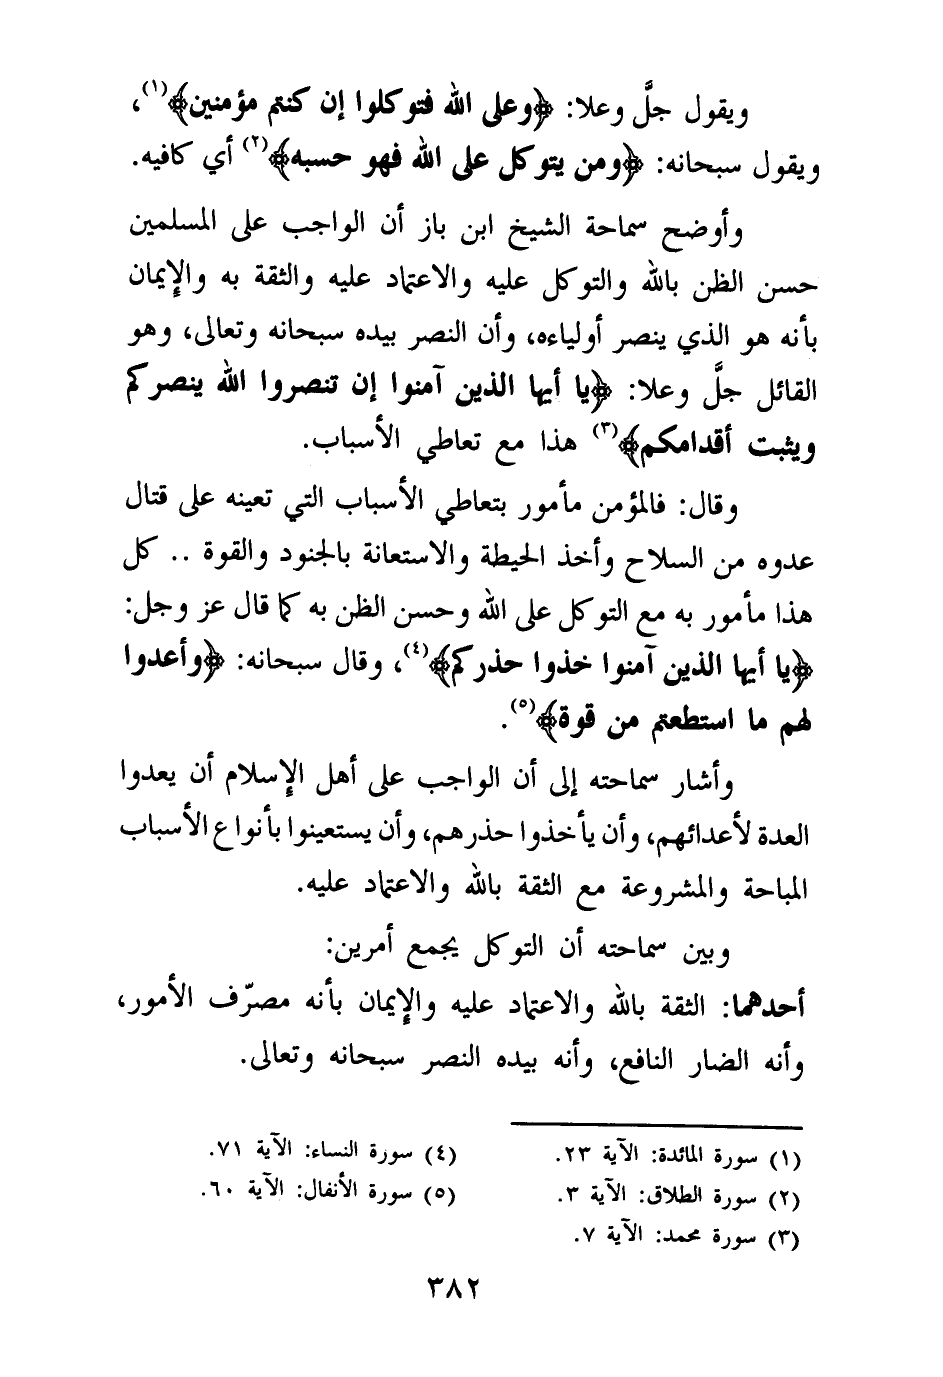 ويقول جلَّ وعلا: ﴿وعلى الله فتوكلوا إن كنتم مؤمنين﴾(١)،
ويقول سبحانه: ﴿ومن يتوكل على الله فهو حسبه﴾(٢) أي كافيه.
وأوضح سماحة الشيخ ابن باز أن الواجب على المسلمين
حسن الظن بالله والتوكل عليه والاعتماد عليه والثقة به والإيمان
بأنه هو الذي ينصر أولياءه، وأن النصر بيده سبحانه وتعالى، وهو
القائل جلَّ وعلا: ﴿يا أيها الذين آمنوا إن تنصروا الله ينصركم
ويثبت أقدامكم﴾(٣) هذا مع تعاطي الأسباب.
وقال: فالمؤمن مأمور بتعاطي الأسباب التي تعينه على قتال
عدوه من السلاح وأخذ الحيطة والاستعانة بالجنود والقوة .. كل
هذا مأمور به مع التوكل على الله وحسن الظن به كما قال عز وجل:
﴿يا أيها الذين آمنوا خذوا حذركم﴾(٤)، وقال سبحانه: ﴿وأعدوا
لهم ما استطعتم من قوة﴾(٥).
وأشار سماحته إلى أن الواجب على أهل الإسلام أن يعدوا
العدة لأعدائهم، وأن يأخذوا حذرهم، وأن يستعينوا بأنواع الأسباب
المباحة والمشروعة مع الثقة بالله والاعتماد عليه.
وبين سماحته أن التوكل يجمع أمرين:
أحدهما: الثقة بالله والاعتماد عليه والإيمان بأنه مصرّف الأمور،
وأنه الضار النافع، وأنه بيده النصر سبحانه وتعالى.
(١) سورة المائدة: الآية ٢٣.
(٢) سورة الطلاق: الآية ٣.
(٣) سورة محمد: الآية ٧.
(٤) سورة النساء: الآية ٧١.
(٥) سورة الأنفال: الآية ٦٠.
٣٨٢